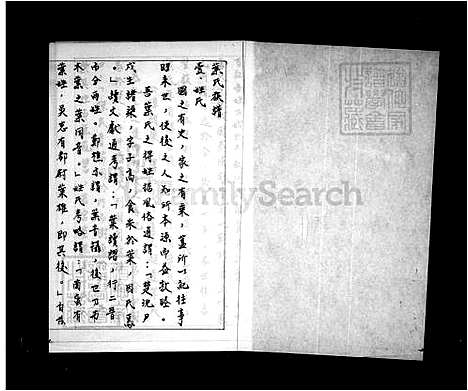 葉氏族譜
壹、姓氏
國之有史，家之有乘，蓋所以記往事
昭來世，使後之人知所本源而益敦睦。
吾葉氏之得姓據風俗通謂：「楚沈尹
戌生諸梁，字子高，食采於葉，因氏焉
。」續文獻通考謂：「葉讀攝，行二音
而分兩姓。鄭樵亦謂，葉音攝，後世乃與
木葉之葉同音。」姓氏考略謂：「南蠻有
葉姓，吳志有都尉葉雄，即其後。」
FamilySearch